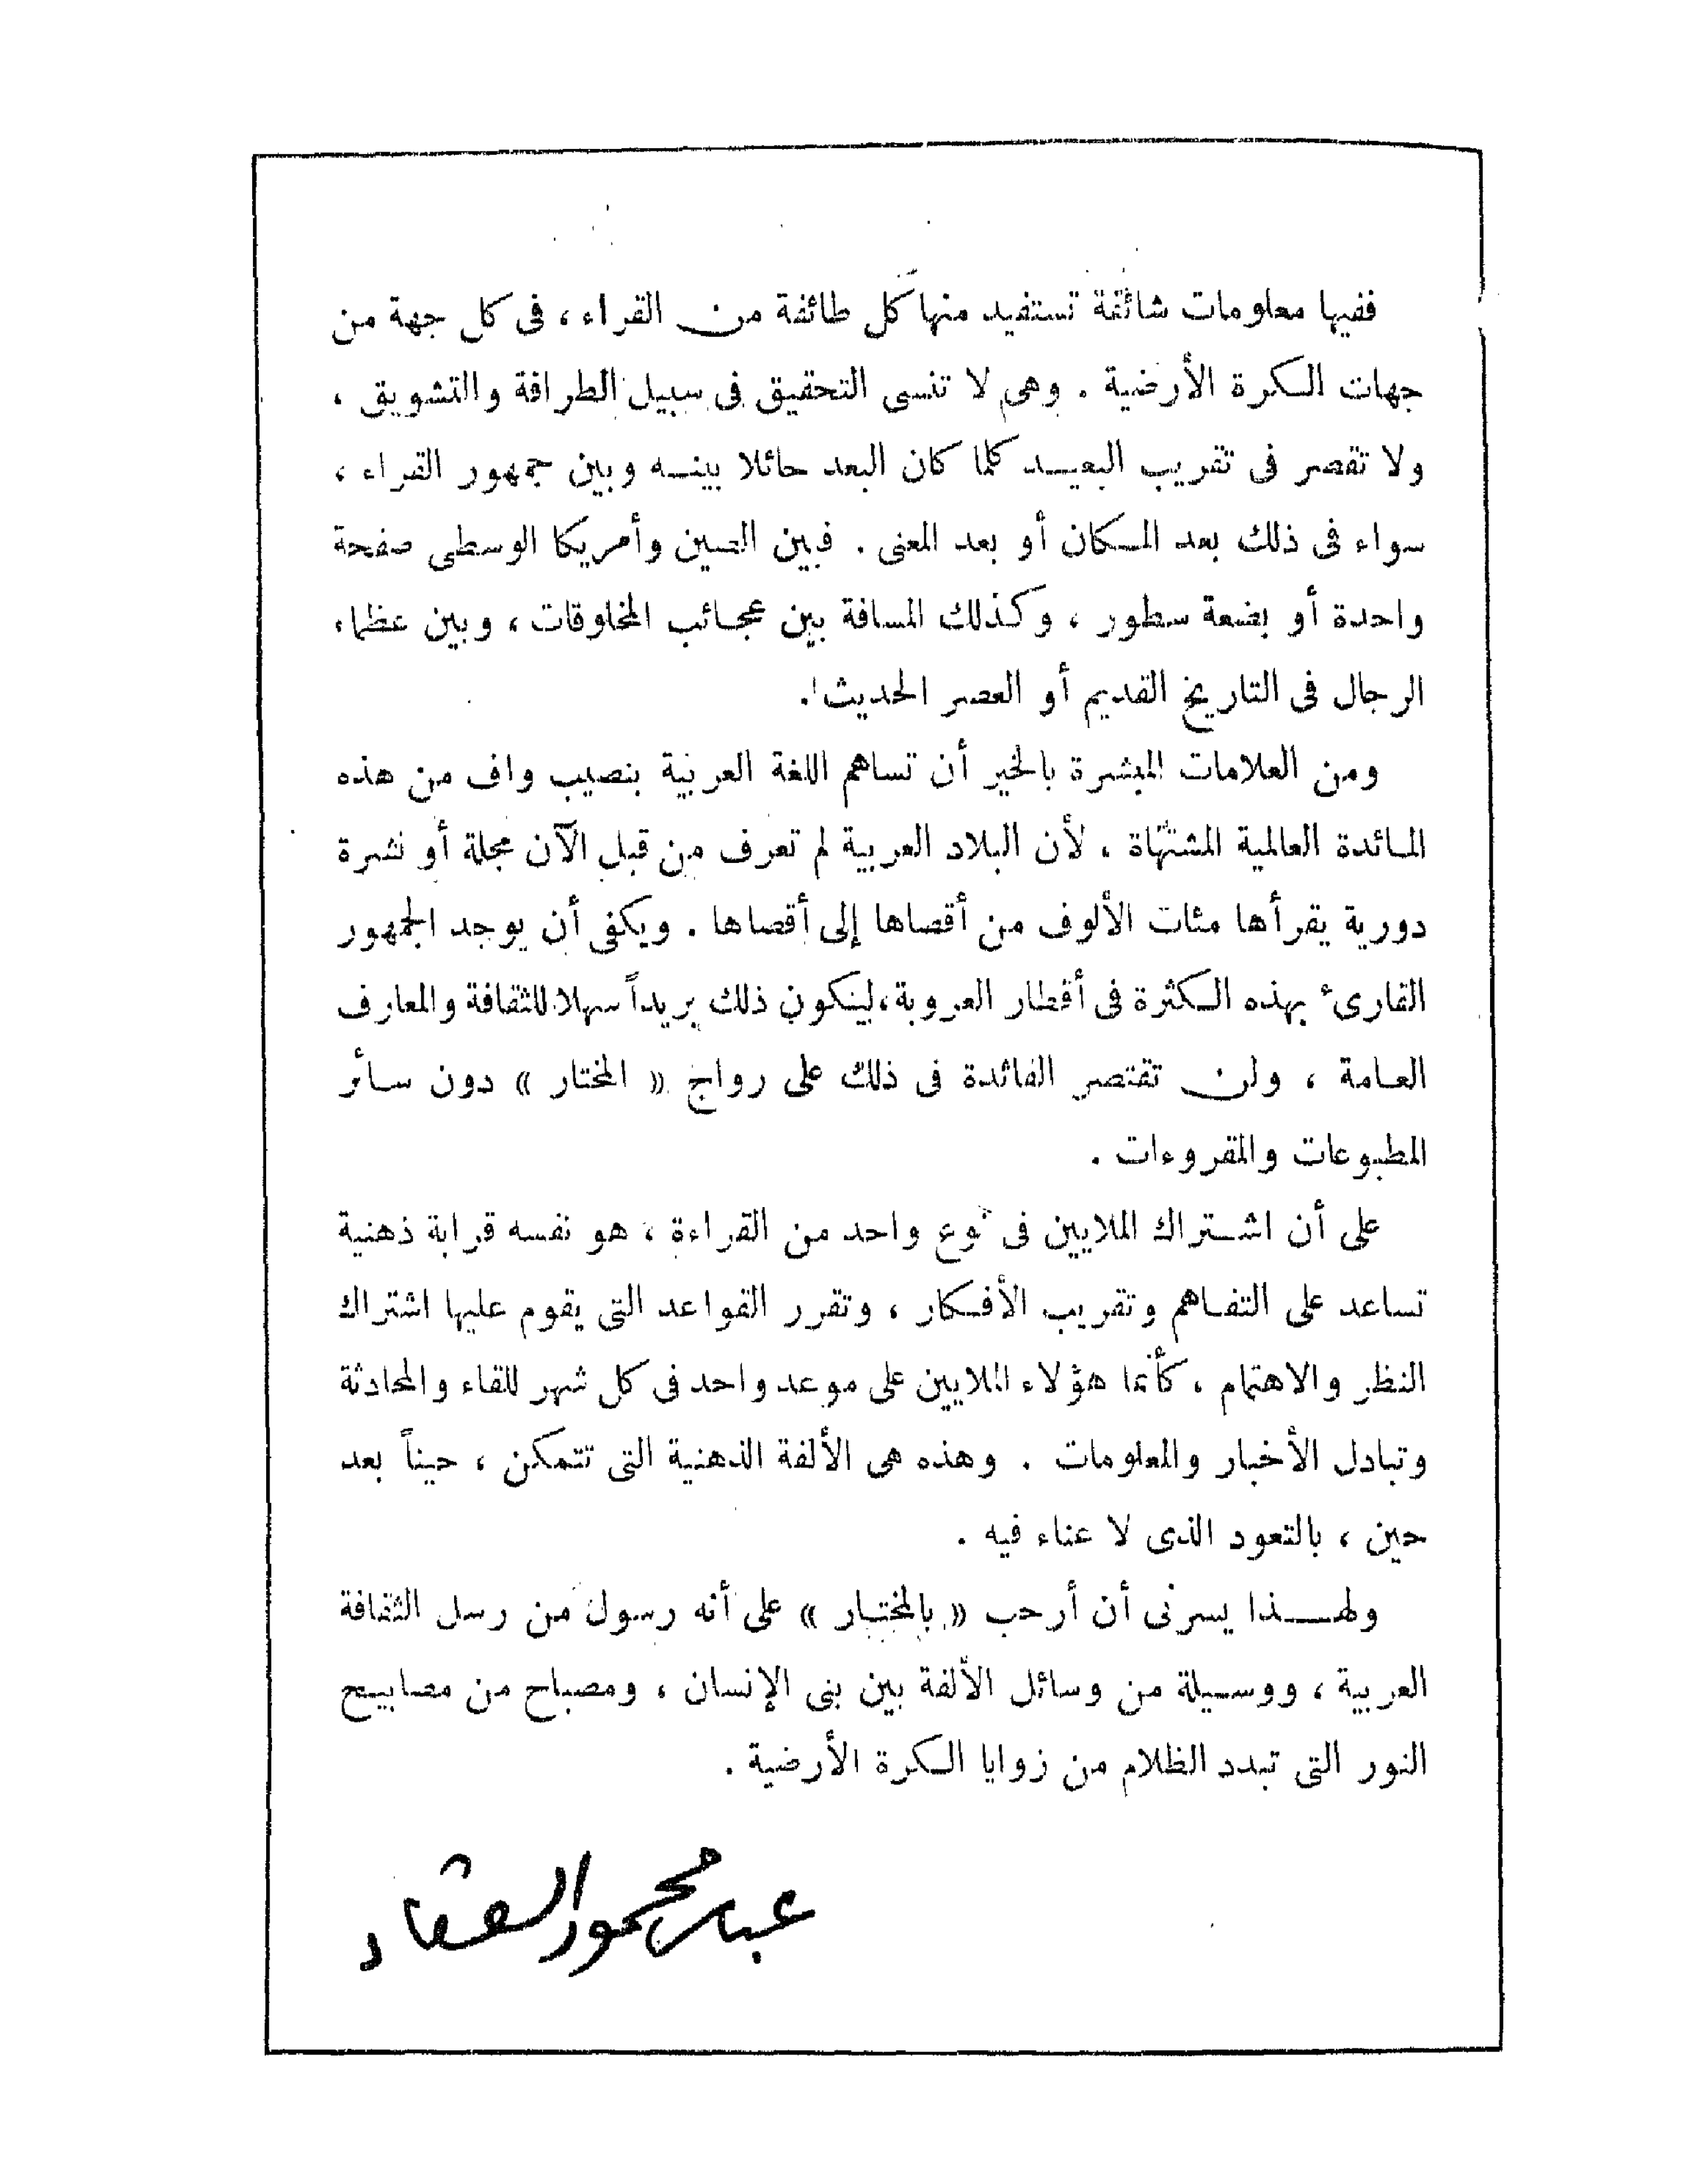 ففيها معلومات شائقة تستفيد منها كل طائفة من القراء ، فى كل جهة من
جهات الكرة الأرضية . وهى لا تنسى التحقيق فى سبيل الطرافة والتشويق ،
ولا تقصر فى تقريب البعيد كلما كان البعد حائلا بينه وبين جمهور القراء ،
سواء فى ذلك بعد المكان أو بعد المعنى . فبين الصين وأمريكا الوسطى صفحة
واحدة أو بضعة سطور ، وكذلك المسافة بين عجائب المخلوقات ، وبين عظماء
الرجال فى التاريخ القديم أو العصر الحديث .
ومن العلامات المبشرة بالخير أن تساهم اللغة العربية بنصيب واف من هذه
المائدة العالمية المشتهاة ، لأن البلاد العربية لم تعرف من قبل الآن مجلة أو نشرة
دورية يقرأها مئات الألوف من أقصاها إلى أقصاها . ويكفى أن يوجد الجمهور
القارىء بهذه الكثرة فى أقطار العروبة ، ليكون ذلك بريداً سهلا للثقافة والمعارف
العامة ، ولن تقتصر الفائدة فى ذلك على رواج « المختار » دون سائر
المطبوعات والمقروءات .
على أن اشتراك الملايين فى نوع واحد من القراءة ، هو نفسه قرابة ذهنية
تساعد على التفاهم وتقريب الأفكار ، وتقرر القواعد التى يقوم عليها اشتراك
النظر والاهتمام ، كأنما هؤلاء الملايين على موعد واحد فى كل شهر للقاء والمحادثة
وتبادل الأخبار والمعلومات . وهذه هى الألفة الذهنية التى تتمكن ، حيناً بعد
حين ، بالتعود الذى لا عناء فيه .
ولهذا يسرنى أن أرحب « بالمختار » على أنه رسول من رسل الثقافة
العربية ، ووسيلة من وسائل الألفة بين بنى الإنسان ، ومصباح من مصابيح
النور التى تبدد الظلام من زوايا الكرة الأرضية .
عباس محمود العقاد